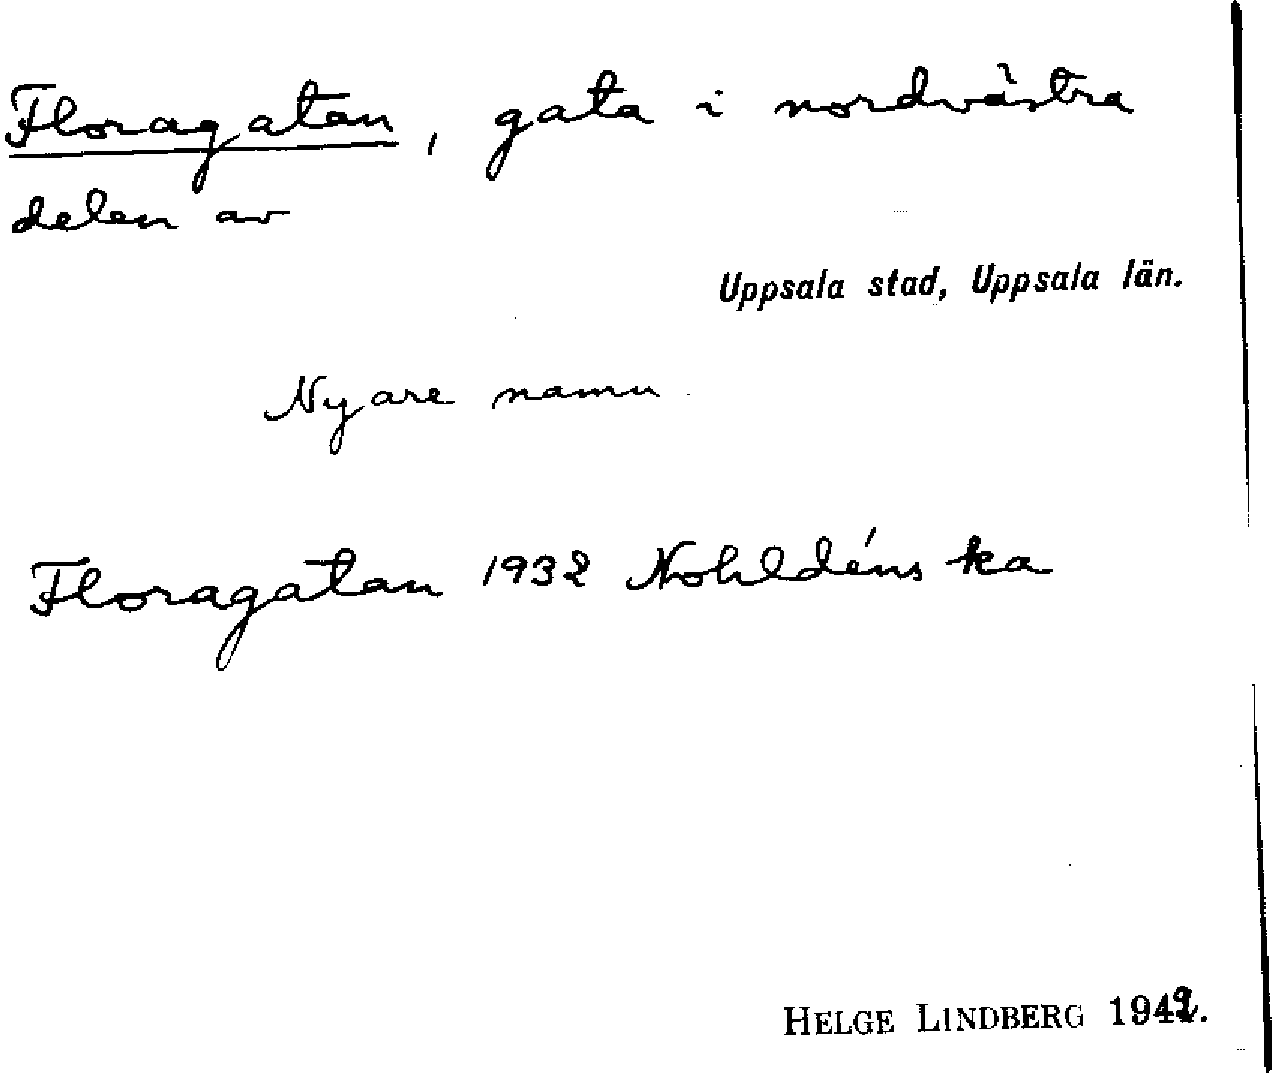 Floragatan, gata i nordvästra
delen av
Uppsala stad, Uppsala län.
Nyare namn
Floragatan 1932 Nohldéns ka
HELGE LINDBERG 1942.